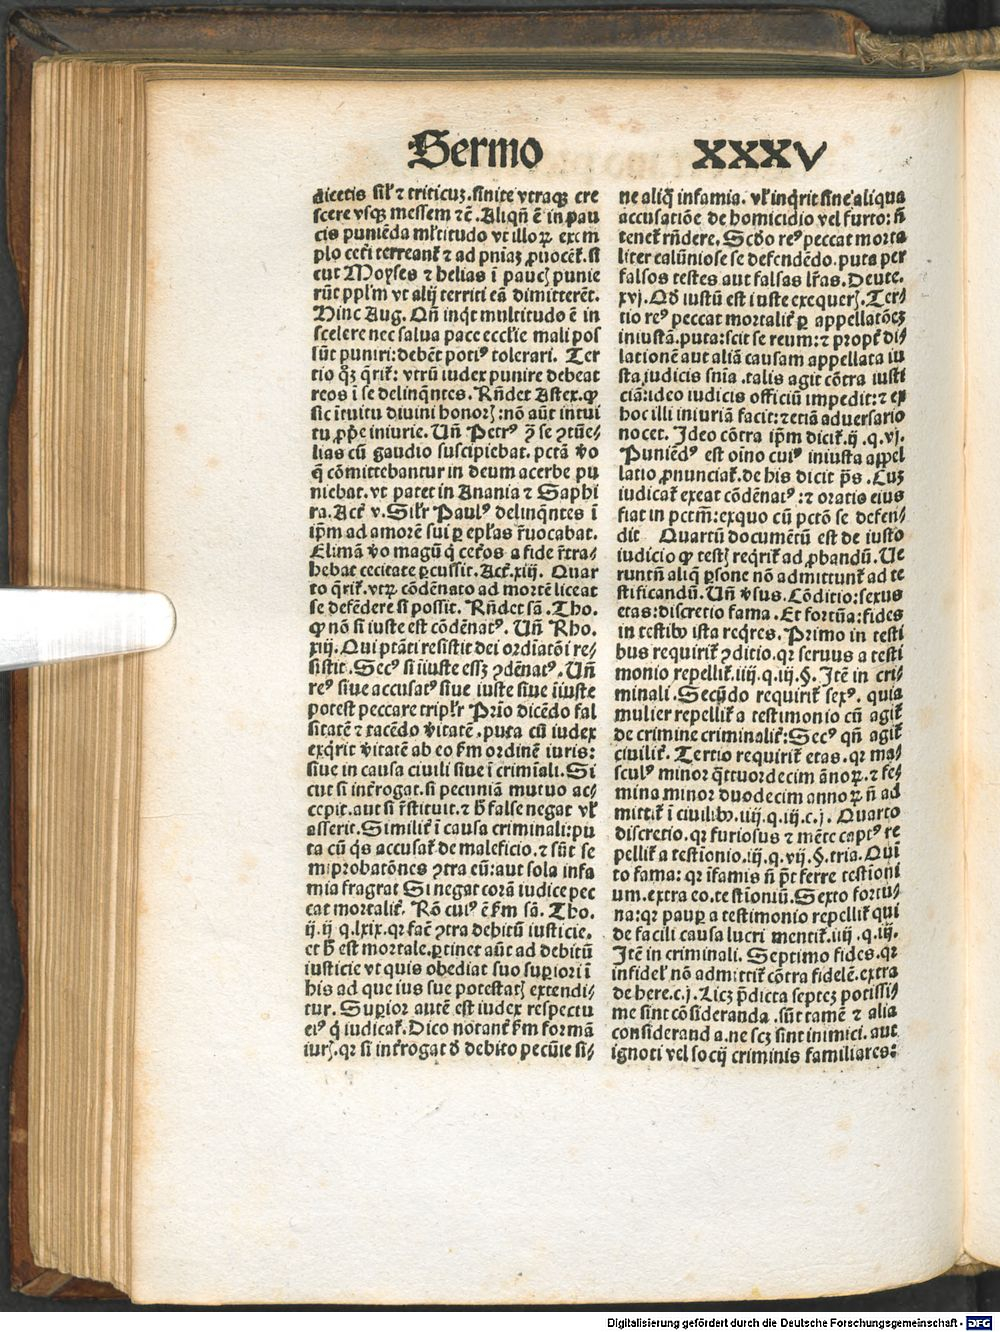 Sermo XXXV
dicetis sil̉ ⁊ triticuꝫ. sinite vtraqꝫ cre
scere vsqꝫ messem ⁊c̄. Aliqn̄ ē in pau
cis puniēda ml̉titudo vt illoꝝ exem
plo ceti terreant̉ ⁊ ad pniaꝫ ꝓuocēt̉. si
cut Moyses ⁊ helias ī paucꝭ punie
rūt ppl̉m vt alij territi eā dimitterēt.
Hinc Aug. Qn̄ inq̇t multitudo ē in
scelere nec salua pace eccl̉ie mali pos
sūt puniri: debēt potiꝰ tolerari. Ter
tio qꝫ q̄rit̉: vtrū iudex punire debeat
reos ī se delinq̄ntes. Rn̄det Astex. ꝙ
sic ītuitu diuini honorꝭ: nō aūt intui
tu ꝓpe iniurie. Un̄ Petrꝰ ꝙ̄ se ꝯtūe⸗
lias cū gaudio suscipiebat. pctā ṽo
q̄ cōmittebantur in deum acerbe pu
niebat. vt patet in Anania ⁊ Saphi
ra. Act̉ v. Sil̉r Paulꝰ delinq̄ntes ī
ip̄m ad amorē sui ꝑ epl̉as r̄uocabat.
Elimā ṽo magū q̇ cet̉os a fide r̄tra⸗
hebat cecitate ꝑcussit. Act̉. xiij. Quar
to q̄rit̉. vtꝝ cōdēnato ad mortē liceat
se defēdere si possit. Rn̄det sā. Tho.
ꝙ nō si iuste est cōdēnatꝰ. Un̄ Rho.
xiij. Qui ptāti resistit dei ordīatōi re⸗
sistit. Secꝰ si īiuste essꝫ ꝯdēnatꝰ. Un̄
reꝰ siue accusatꝰ siue iuste siue īiuste
potest peccare tripl̉r Prīo dicēdo fal
sitatē ⁊ tacēdo ṽitatē. puta cū iudex
exq̇rit ṽitatē ab eo ẜm ordinē iuris:
siue in causa ciuili siue ī crimīali. Si
cut si int̉rogat. si pecuniā mutuo ac⸗
cepit. aut si r̄stituit. ⁊ ħ false negat vl̉
asserit. Similit̉ ī causa criminali: pu
ta cū q̇s accusat̉ de maleficio. ⁊ sūt se
miprobatōnes ꝯtra eū: aut sola infa
mia fragrat Si negat corā iudice pec
cat mortalit̉. Rō cuiꝰ ē ẜm sā. Tho.
ij. ij q. lxix. qꝛ fac̄ ꝯtra debitū iusticie.
et ħ est mortale. ꝑtinet aūt ad debitū
iusticie vt quis obediat suo supiori ī
his ad que ius sue potestatꝭ extendi⸗
tur. Supior autē est iudex respectu
eiꝰ q̇ iudicat̉. Dico notant̉ ẜm formā
iurꝭ. qꝛ si int̉rogat ꝺ debito pecūie si⸗
ne aliq̇ infamia. vl̉ inq̇rit sine aliqua
accusatiōe de homicidio vel furto: n̄
tenet̉ rn̄dere. Scḋo reꝰ peccat morta
liter calūniose se defendēdo. puta per
falsos testes aut falsas lr̄as. Deute.
xvj. Qḋ iustū est iuste exequerꝭ. Ter⸗
tio reꝰ peccat mortalit̉ ꝑ appellatōeꝫ
iniustā. puta: scit se reum: ⁊ propt̉ di⸗
lationē aut aliā causam appellat a iu
sta iudicis sn̄ia. talis agit cōtra iusti
ciā: ideo iudicis officiū impedit: ⁊ ex
hoc illi iniuriā facit: ⁊ etiā aduersario
nocet. Ideo cōtra ip̄m dicit̉. ij. q. vj.
Puniēdꝰ est oīno cuiꝰ iniusta appel
latio ꝓnunciat̉. de his dicit p̄s. Cuꝫ
iudicat̉ exeat cōdēnatꝰ: ⁊ oratio eius
fiat in pctm̄: ex quo cū pctō se defen⸗
dit Quartū documētū est de iusto
iudicio ꝙ testꝭ req̇rit̉ ad ꝓbandū. Ue
runtn̄ aliq̄ ꝑsone nō admittunt̉ ad te
stificandū. Un̄ ṽsus. Cōditio: sexus
etas: discretio fama. Et fortūa: fides
in testibꝫ ista req̇res. Primo in testi
bus requirit̉ ꝯditio. qꝛ seruus a testi
monio repellit̉. iiij. q. iij. §. Itē in cri⸗
minali. Secūdo requirit̉ sexꝰ. quia
mulier repellit̉ a testimonio cū agit̉
de crimine criminalit̉: Secꝰ qn̄ agit̉
ciuilit̉. Tertio requirit̉ etas. qꝛ ma⸗
sculꝰ minor q̄ttuordecim ānoꝝ. ⁊ fe⸗
mina minor duodecim annoꝝ n̄ ad
mittit̉ ī ciuilibꝫ. iiij. q. iij. c. j. Quarto
discretio. qꝛ furiosus ⁊ mēte captꝰ re
pellit̉ a testīonio. iij. q. vij. §. tria. Quī
to fama: qꝛ īfamis n̄ p̄t ferre testīoni
um. extra eo. testīoniū. Sexto fortu⸗
na: qꝛ paup a testimonio repellit̉ qui
de facili causa lucri mentit̉. iiij. q. iij.
Itē in criminali. Septimo fides. qꝛ
infidel̉ nō admittit̉ cōtra fidelē. extra
de here. c. j. Licꝫ p̄dicta septeꝫ potissi⸗
me sint cōsideranda. sūt tamē ⁊ alia
consideranda. ne scꝫ sint inimici. aut
ignoti vel socij criminis familiares:
Digitalisierung gefördert durch die Deutsche Forschungsgemeinschaft - DFG